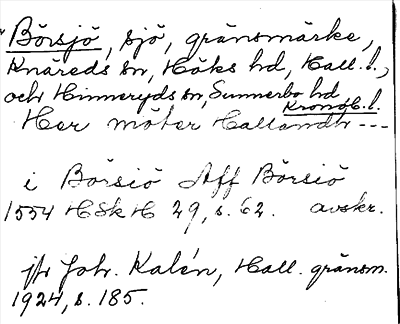 Börsjö, sjö, gränsmärke,
Knäreds sn, Höks hd, Hall. l.,
och Hinneryds sn, Sunnerbo hd
Kronob. l.
Her möter Hallandh ---
i Börsiö Aff Börsiö
1554 HSkH 29, s. 62. avskr.
jfr Joh. Kalén, Hall. gränsm.
1924, s. 185.